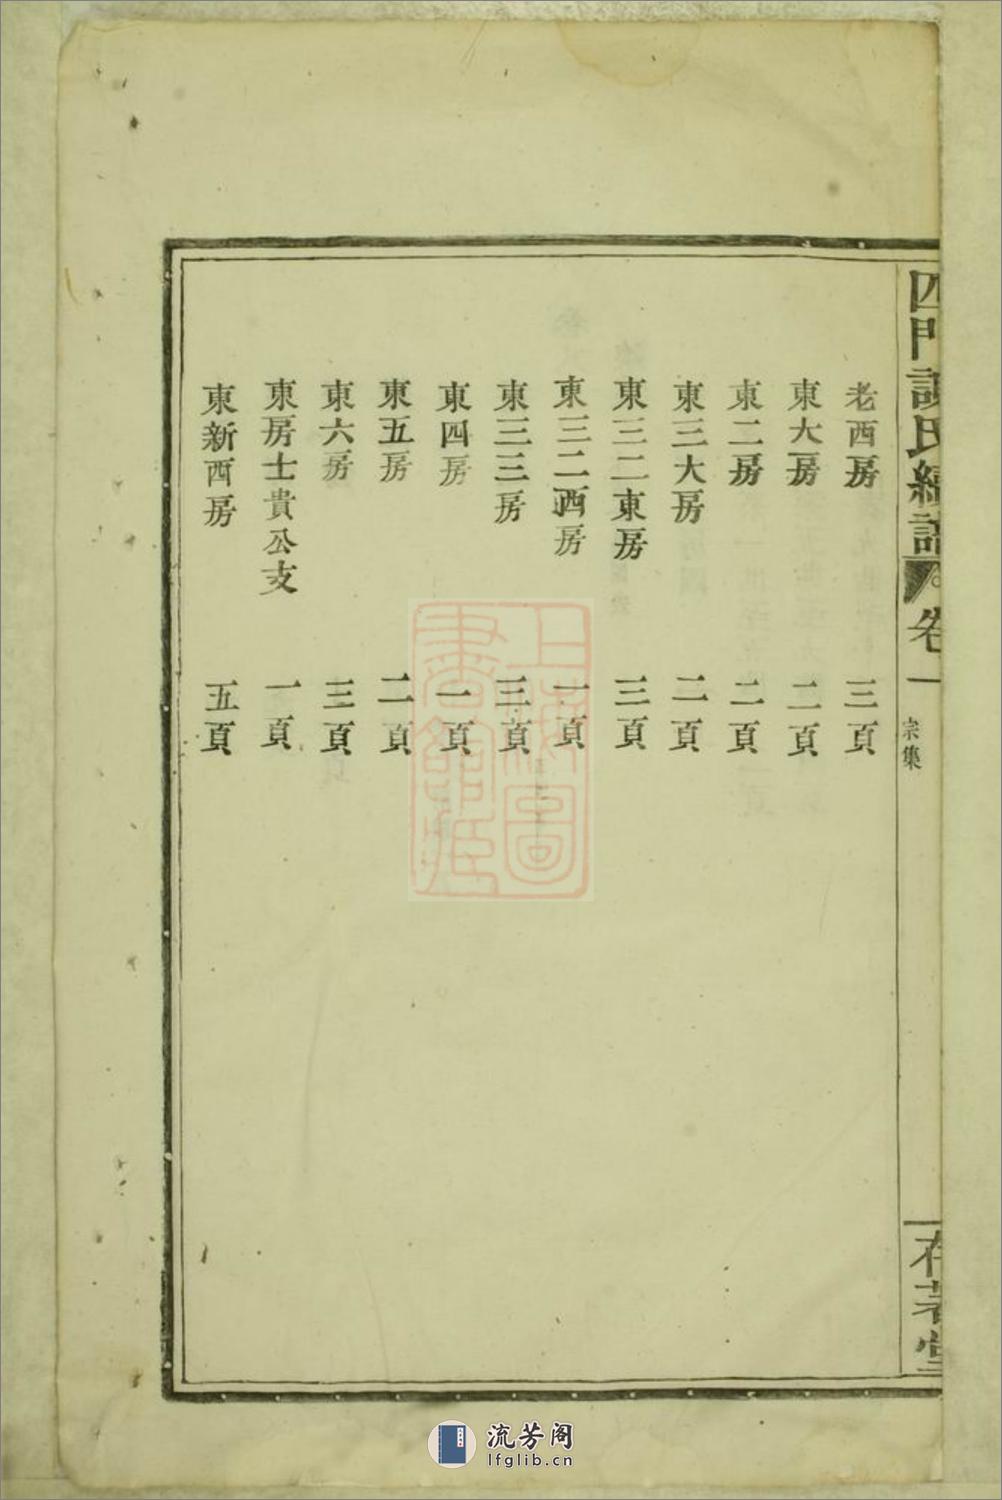 四門謝氏續譜 卷一 宗集 存著堂
老西房 三頁
東大房 二頁
東二房 二頁
東三大房 二頁
東三二東房 三頁
東三二西房 一頁
東三三房 三頁
東四房 一頁
東五房 二頁
東六房 三頁
東房士貴公支 一頁
東新西房 五頁
上海圖書館藏
流芳阁
lfglib.cn